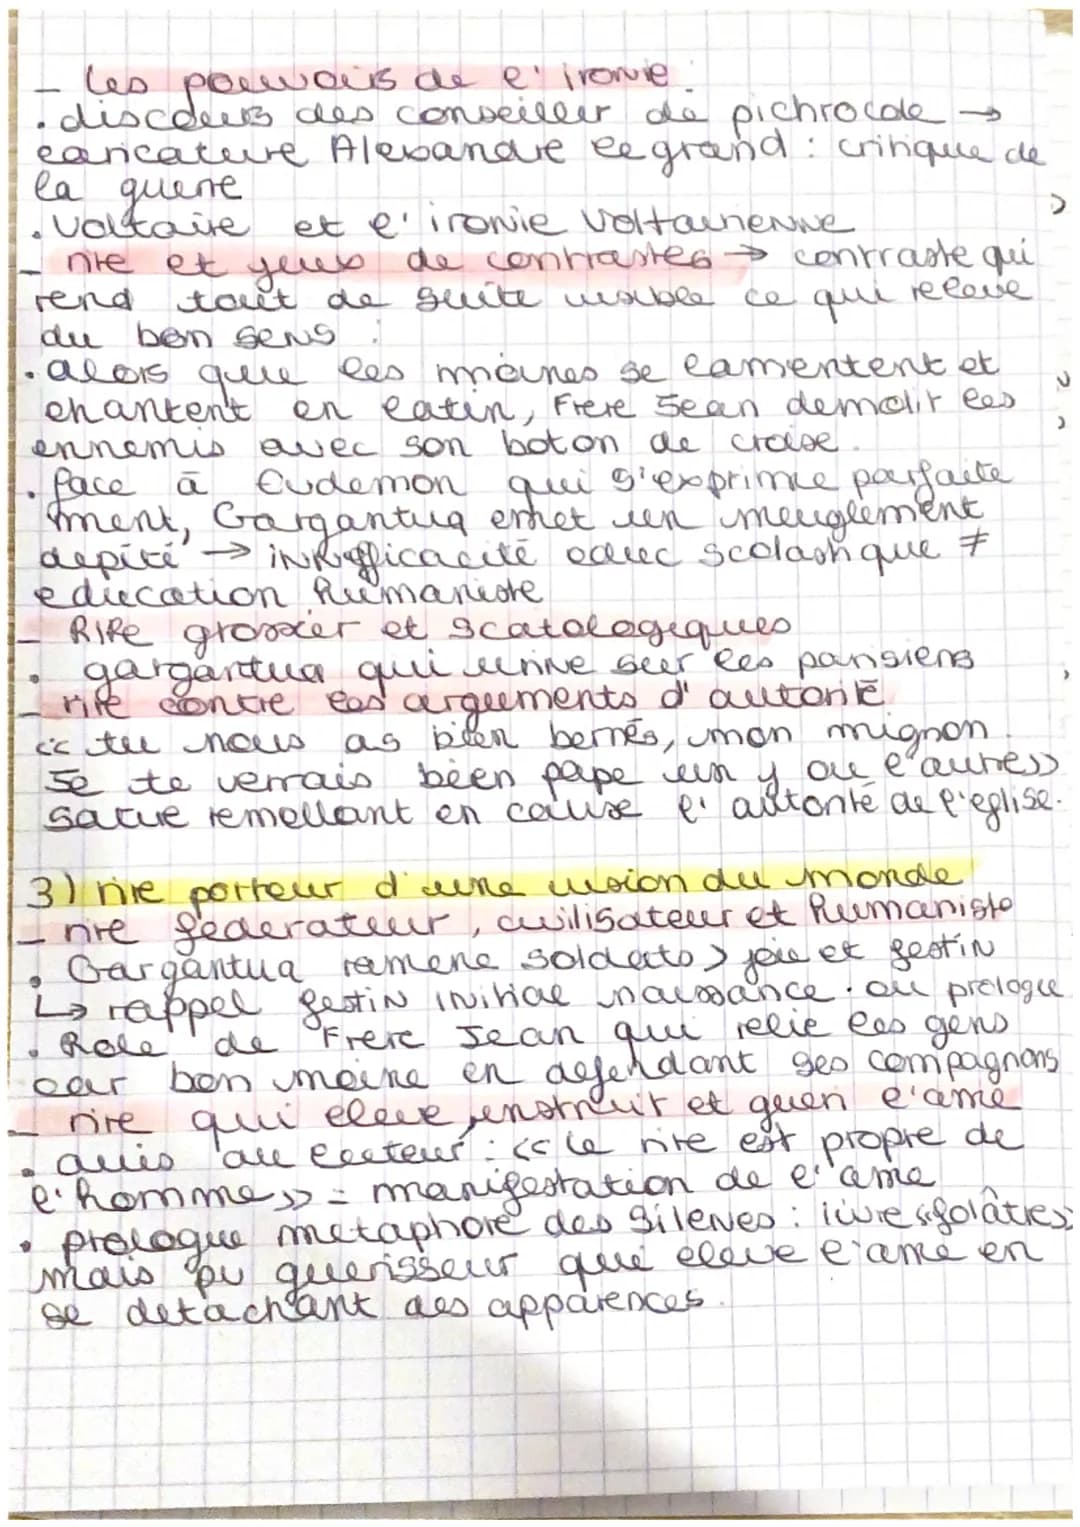 - les pouvoirs de l'ironie :
. discours des conseiller de pichrocole →
caricature Alexandre le grand : critique de
la guerre
. Voltaire et l'ironie Voltairienne
- rire et jeux de contrastes → contraste qui
rend tout de suite visible ce qui releve
du bon sens :
. alors que les moines se lamentent et
chantent en latin, Frere Jean demolir les
ennemis avec son boton de croise.
. face à Eudemon qui s'exprime parfaite
ment, Gargantua emet un meuglement
depité → inefficacité educ scolastique ≠
education humaniste
- Rire grossier et scatologiques
. gargantua qui urine sur les parisiens
- rire contre les arguments d'autorité
<< tu nous as bien bernés, mon mignon.
Je te verrais bien pape un y ou l'autre >>
satire remettant en cause l'autorité de l'eglise.
3) rire porteur d'une vision du monde
- rire federateur, civilisateur et humaniste
. Gargantua ramene soldats > joie et festin
↳ rappel festin initial naissance. ou prologue
. Role de Frere Jean qui relie les gens
car bon moine en defendant ses compagnons
- rire qui eleve, instruit et gueri l'ame
. avis au lecteur : << le rire est propre de
l'homme >> = manifestation de l'ame
. prologue metaphore des Silenes : ivre « folâtre »
mais pv guerisseur qui eleve l'ame en
se detachant des apparences.